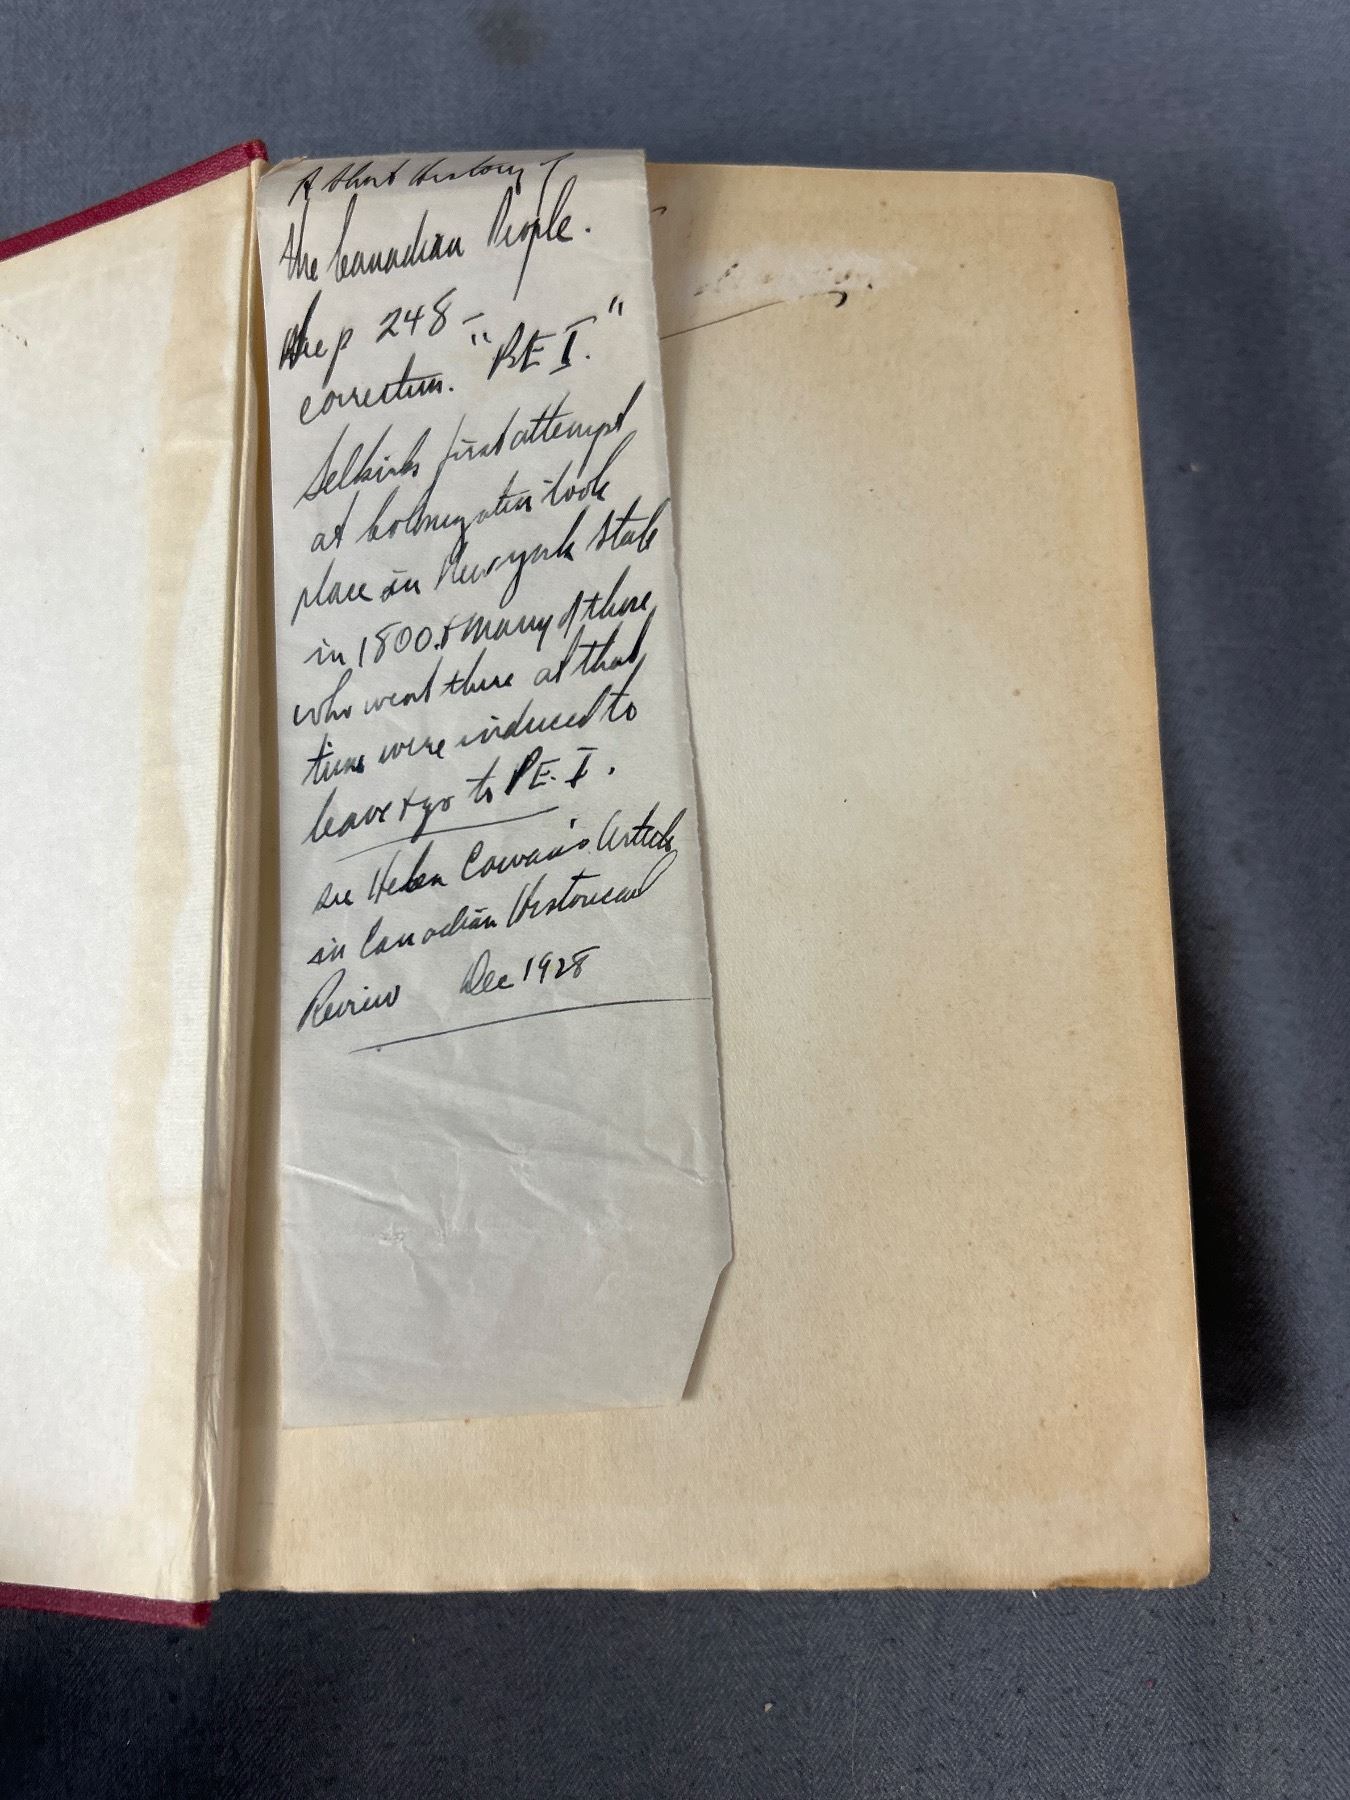 A Short History of
the Canadian People.
see p 248 –
correction. "P.E I."
Selkirks first attempt
at Colonization took
place in New york State
in 1800. & many of those
who went there at that
time were induced to
leave & go to P.E. I.
see Helen Cowan's Article
in Canadian Historical
Review Dec 1928